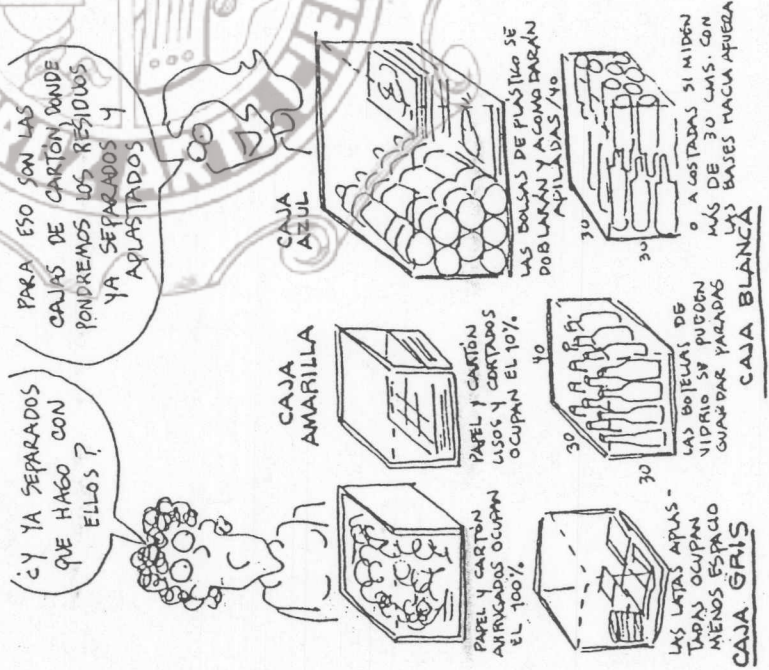 ¿Y YA SEPARADOS
QUE HAGO CON
ELLOS ?
PARA ESO SON LAS
CAJAS DE CARTÓN DONDE
PONDREMOS LOS RESIDUOS
YA SEPARADOS Y
APLASTADOS
PAPEL Y CARTÓN
ARRUGADOS OCUPAN
EL 100%
CAJA
AMARILLA
PAPEL Y CARTÓN
LISOS Y CORTADOS
OCUPAN EL 10%
CAJA
AZUL
LAS BOLSAS DE PLÁSTICO SE
DOBLARÁN Y ACOMODARÁN
APILADAS
LAS LATAS APLAS-
TADAS OCUPAN
MENOS ESPACIO
CAJA GRIS
30
30
40
LAS BOTELLAS DE
VIDRIO SE PUEDEN
GUARDAR PARADAS
30
30
40
O ACOSTADAS SI MIDEN
MÁS DE 30 CMS. CON
LAS BASES HACIA AFUERA
CAJA BLANCA